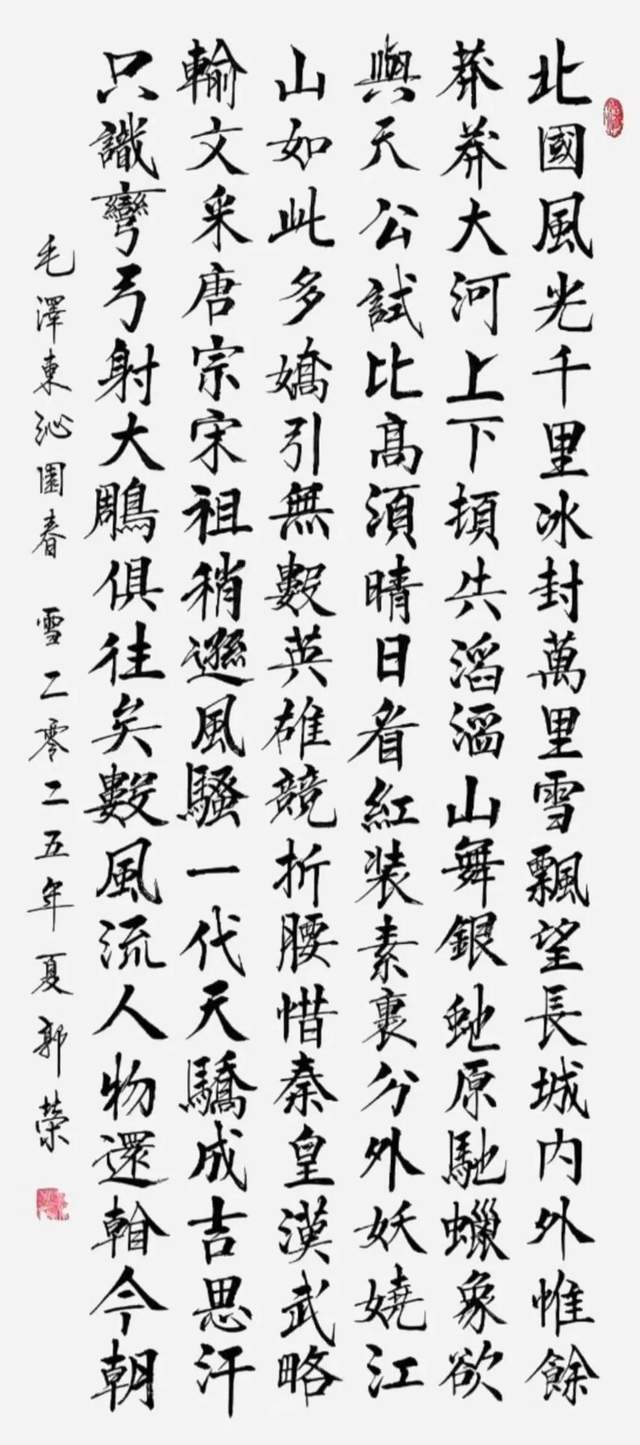 北國風光千里冰封萬里雪飄望長城内外惟餘
莽莽大河上下頓失滔滔山舞銀虵原馳蠟象欲
與天公試比高須晴日看紅装素裹分外妖嬈江
山如此多嬌引無數英雄競折腰惜秦皇漢武略
輸文采唐宗宋祖稍遜風騷一代天驕成吉思汗
只識彎弓射大鵰俱往矣數風流人物還看今朝
毛澤東沁園春 雪二零二五年夏郭榮